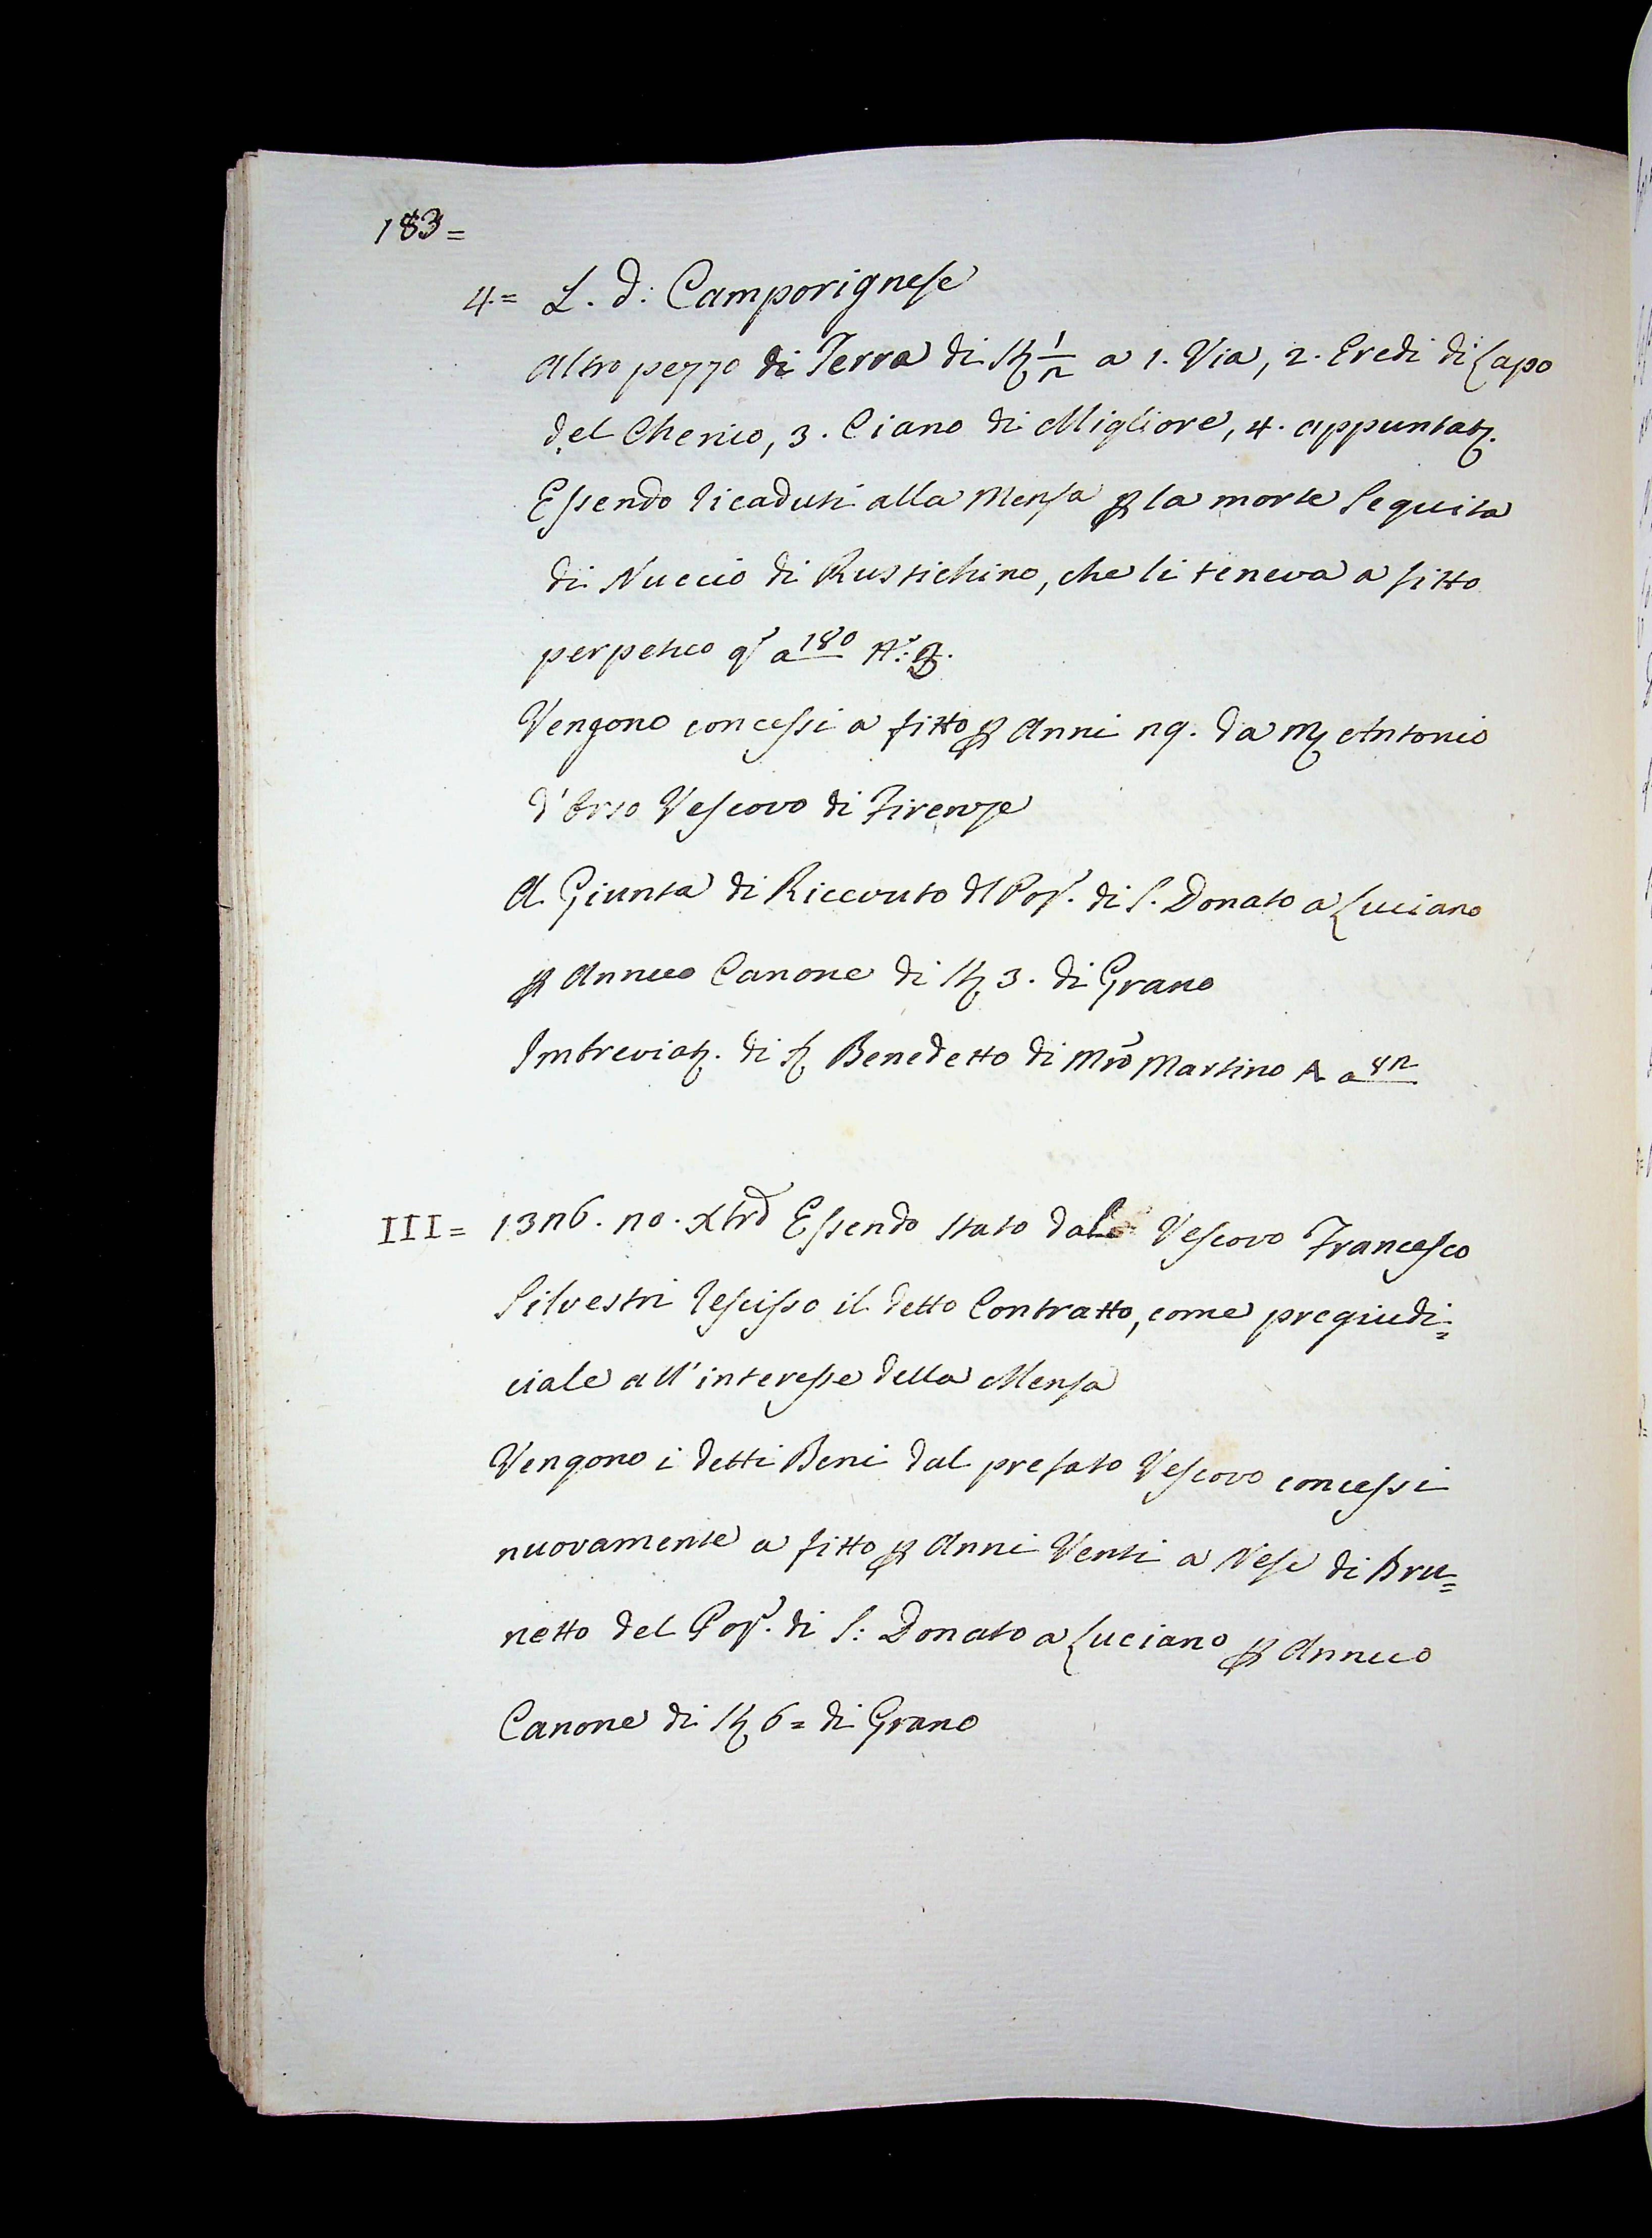 183=
4.= L. d: Camporignese
Altro pezzo di Terra di St. 1/2 a 1. Via, 2. Eredi di Lapo
del Cherico, 3. Ciano di Migliore, 4. appuntat.
Essendo ricaduti alla Mensa p la morte seguita
di Nuccio di Rustichino, che li teneva a fitto
perpetuo qto a 180
Vengono concessi a fitto p Anni 29. da M. Antonio
d'Orso Vescovo di Firenze
A Giunta di Riccouto dl Pop. di S. Donato a Luciano
p Annuo Canone di St. 3. di Grano
Imbreviat. di S. Benedetto di Mro Martino A a 82
III= 1326. 20. Xbre Essendo stato dal Vescovo Francesco
Silvestri rescisso il detto Contratto, come pregiudi=
ciale all'interesse della Mensa
Vengono i detti Beni dal prefato Vescovo concessi
nuovamente a fitto p Anni Venti a Nese di Bru=
netto del Pop. di S: Donato a Luciano p Annuo
Canone di St. 6= di Grano